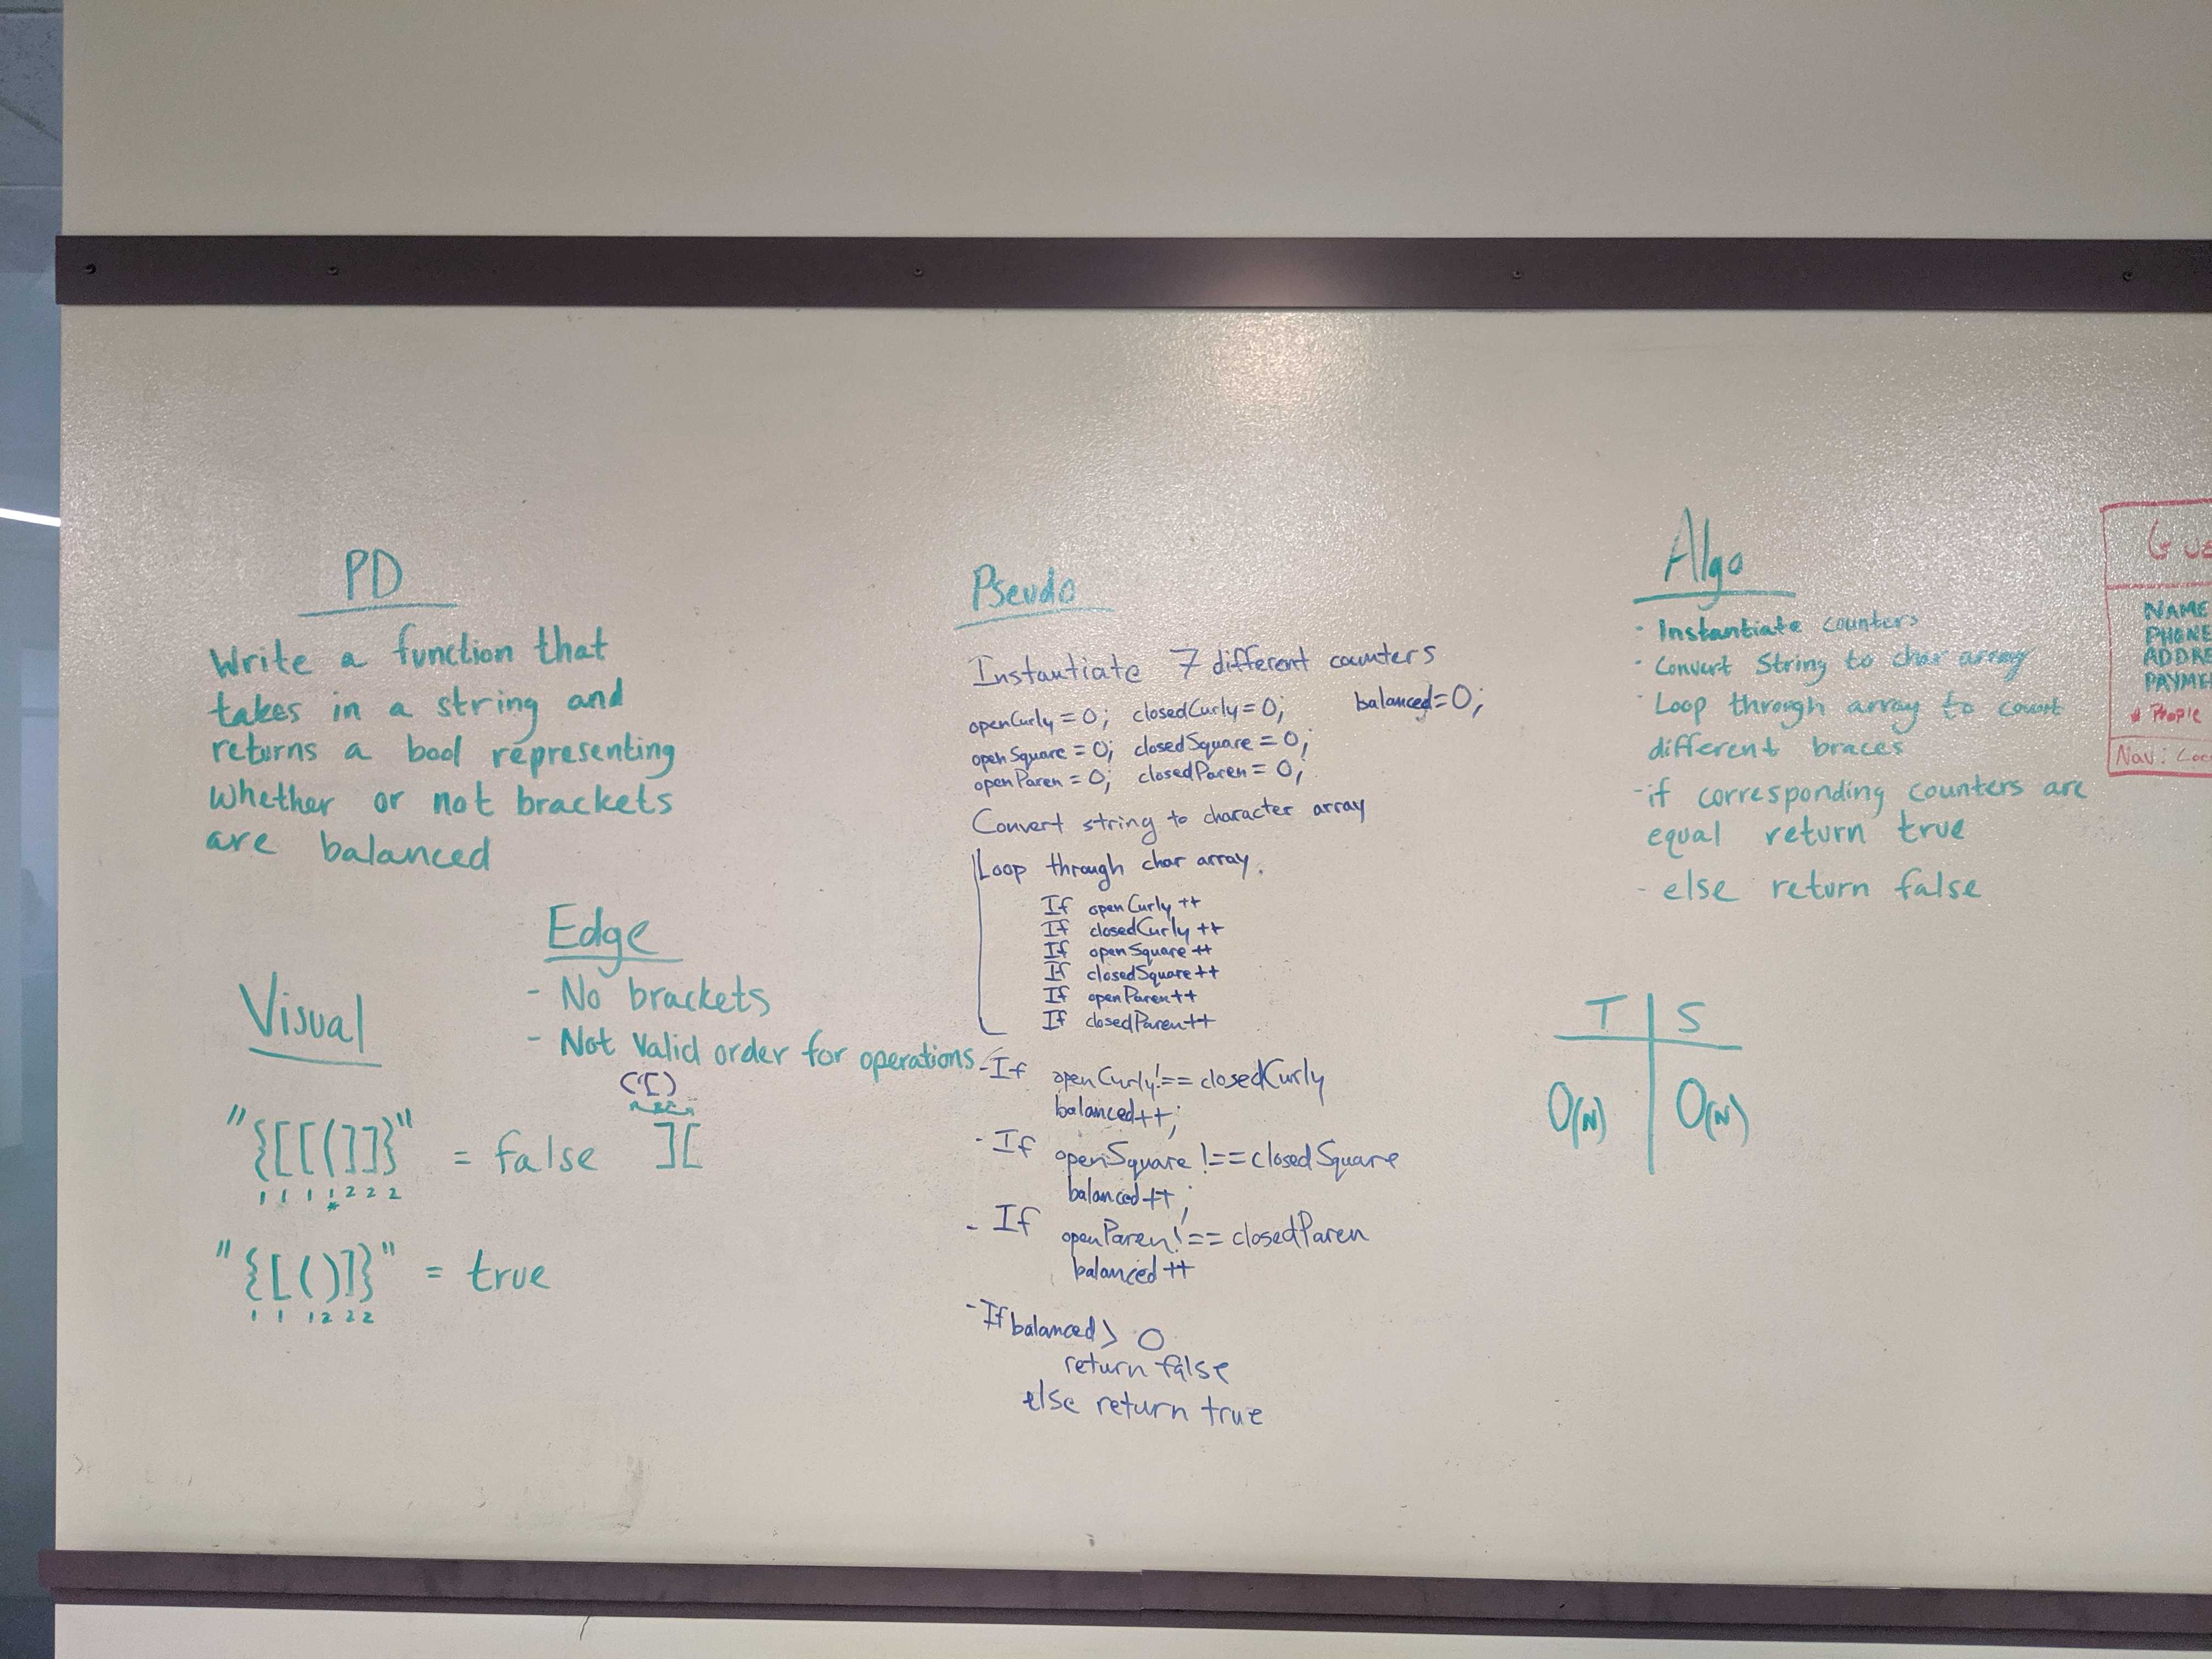 PD
Write a function that
takes in a string and
returns a bool representing
whether or not brackets
are balanced
Edge
- No brackets
- Not Valid order for operations
][
Visual
"{[[(]]}" = false
1 1 1 1 2 2 2
*
"{[()]}" = true
1 1 1 2 2 2
Pseudo
Instantiate 7 different counters
openCurly = 0; closedCurly = 0; balanced = 0;
openSquare = 0; closedSquare = 0;
openParen = 0; closedParen = 0;
Convert string to character array
Loop through char array.
If openCurly ++
If closedCurly ++
If openSquare ++
If closedSquare ++
If openParen ++
If closedParen ++
- If openCurly !== closedCurly
balanced ++;
- If openSquare !== closedSquare
balanced ++;
- If openParen !== closedParen
balanced ++
- If balanced > 0
return false
else return true
Algo
- Instantiate counters
- Convert String to char array
- Loop through array to count
different braces
- if corresponding counters are
equal return true
- else return false
T | S
O(N) | O(N)
NAME
PHONE
People
Nav: